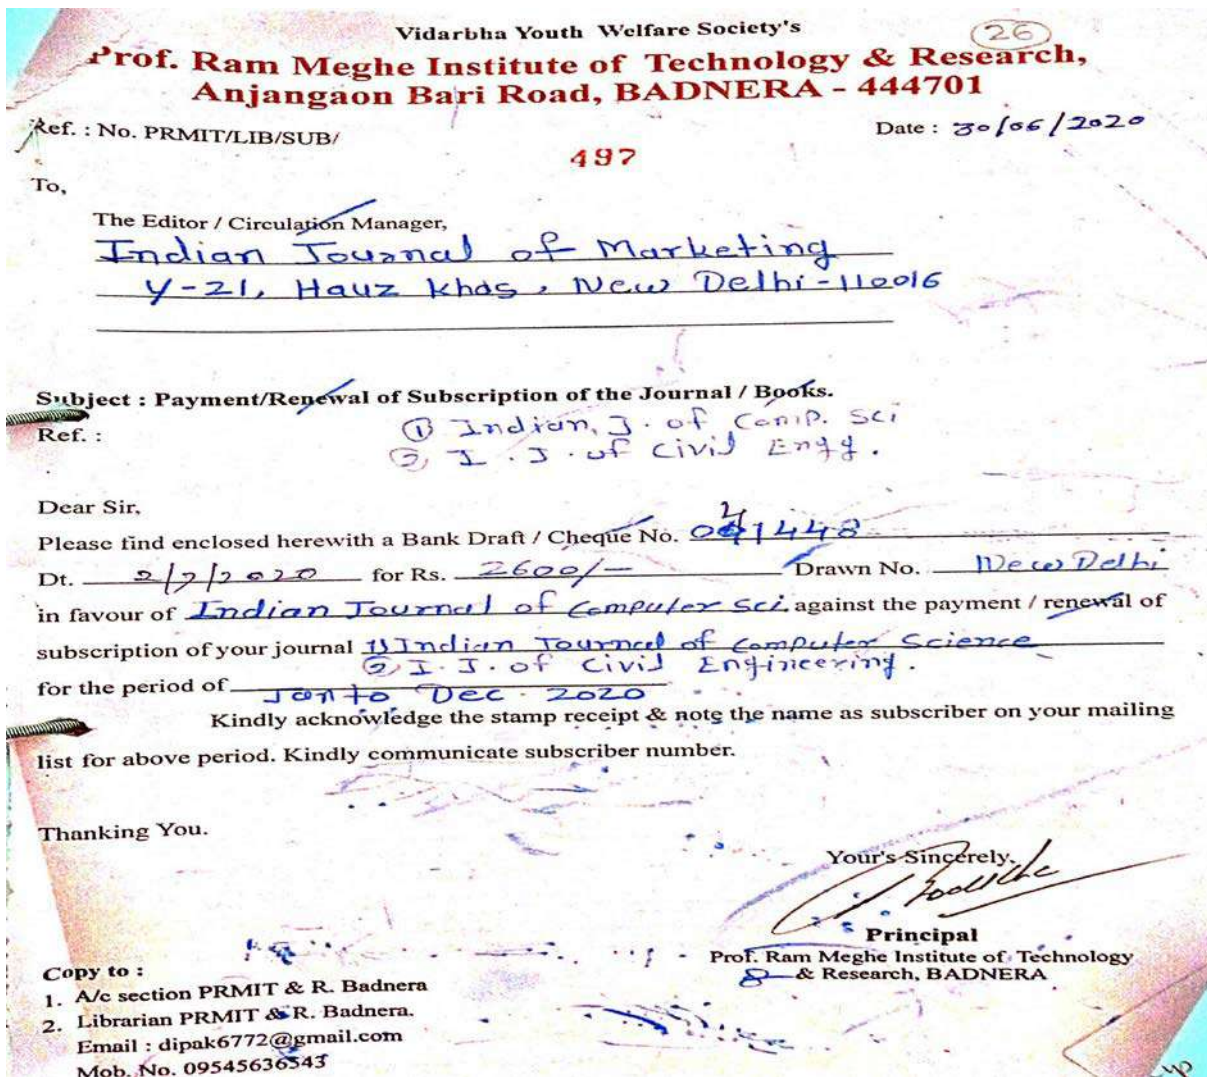 Vidarbha Youth Welfare Society's
26
Prof. Ram Meghe Institute of Technology & Research,
Anjangaon Bari Road, BADNERA - 444701
Ref. : No. PRMIT/LIB/SUB/
Date : 30/06/2020
497
To,
The Editor / Circulation Manager,
Indian Journal of Marketing
Y-21, Hauz Khas, New Delhi-110016
Subject : Payment/Renewal of Subscription of the Journal / Books.
Ref. :
① Indian, J. of Comp. Sci
② I. J. of Civil Engg.
Dear Sir,
Please find enclosed herewith a Bank Draft / Cheque No. 041448
Dt. 2/7/2020 for Rs. 2600/- Drawn No. New Delhi
in favour of Indian Journal of Computer Sci. against the payment / renewal of
subscription of your journal 1) Indian Journal of Computer Science
② I. J. of Civil Engineering.
for the period of Jan to Dec. 2020
Kindly acknowledge the stamp receipt & note the name as subscriber on your mailing
list for above period. Kindly communicate subscriber number.
Thanking You.
Your's Sincerely,
Principal
Prof. Ram Meghe Institute of Technology
& Research, BADNERA
Copy to :
1. A/c section PRMIT & R. Badnera
2. Librarian PRMIT & R. Badnera.
Email : dipak6772@gmail.com
Mob. No. 09545636543